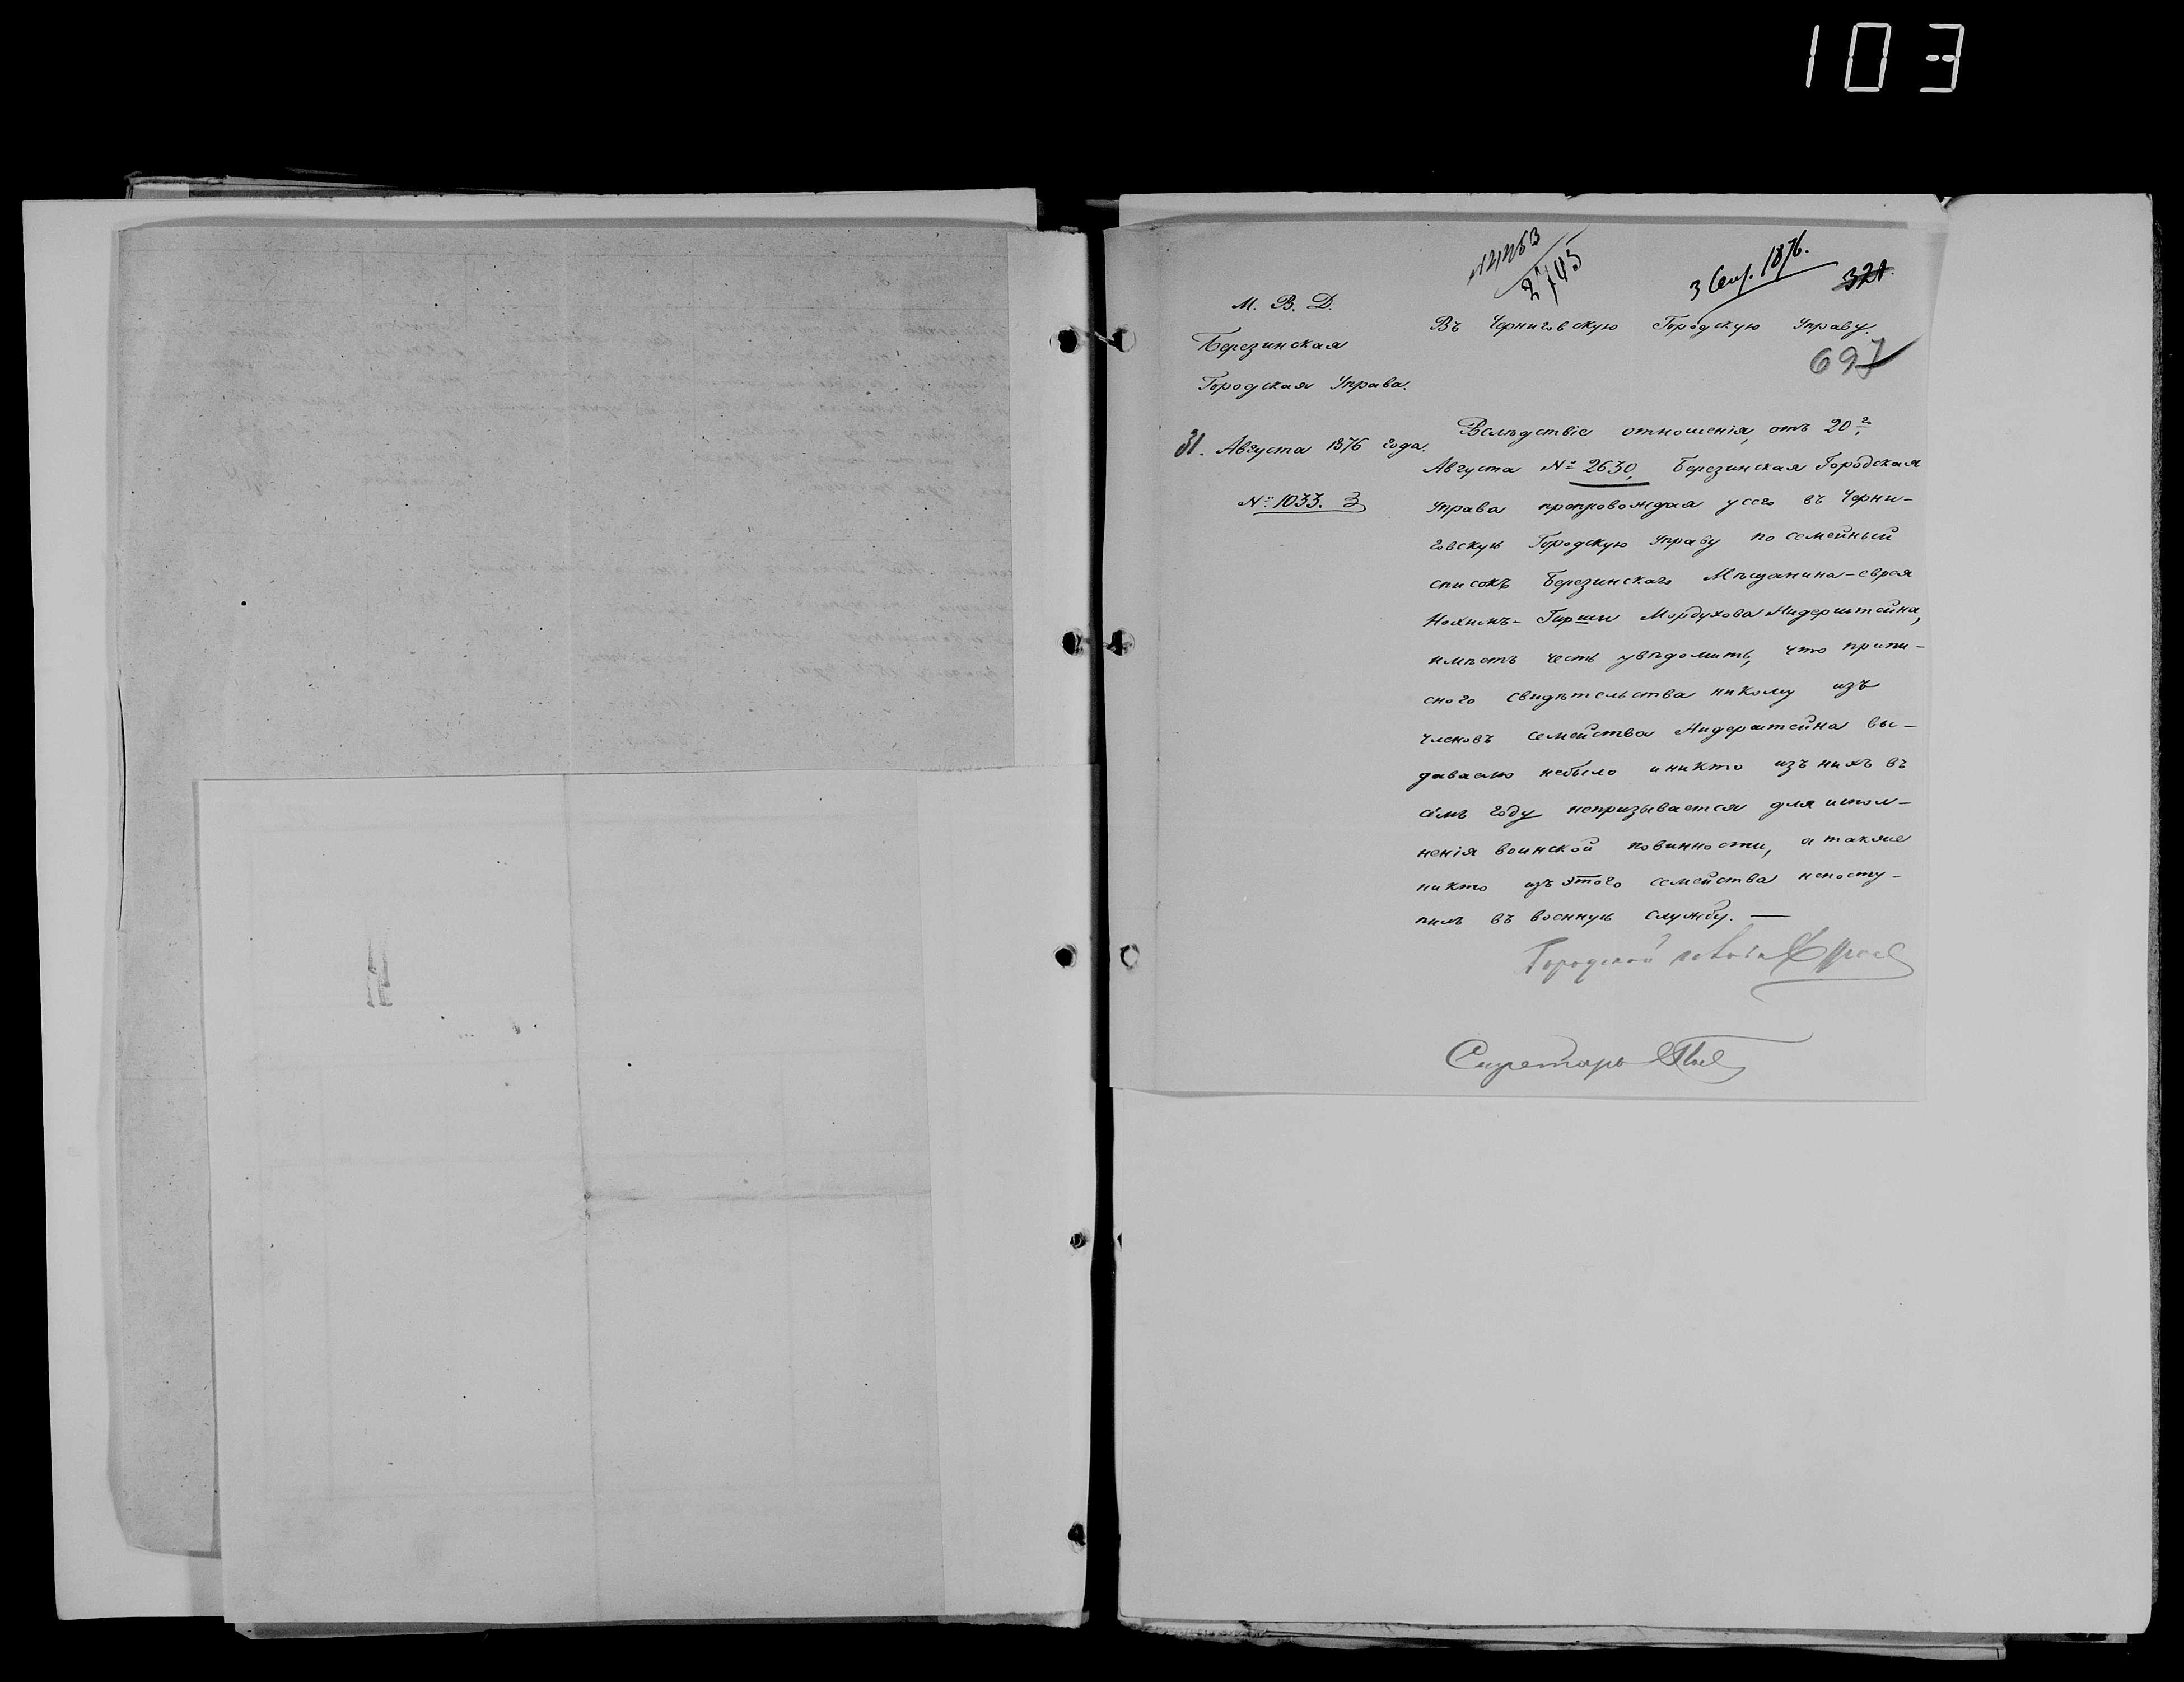 103
2743
3 Сент. 1876.
321.
М. В. Д.
Березинская
Городская Управа.
31. Августа 1876 года.
№ 1033.
Въ Черниговскую Городскую Управу.
697
Вслѣдствіе отношенія, отъ 20 г.
Августа № 2630, Березинская Городская
Управа препровождая у сего въ Черни-
говскую Городскую Управу посемейный
списокъ Березинскаго Мѣщанина-еврея
Нохимъ-Гирши Мордухова Нидерштейна,
имѣетъ честь увѣдомить, что припи-
сного свидѣтельства никому изъ
членовъ семейства Нидерштейна вы-
даваемо небыло и никто изъ нихъ въ
семъ году непризывается для испол-
ненія воинской повинности, а также
никто изъ этого семейства непосту-
пилъ въ военную службу. —
Городской Голова
Секретарь